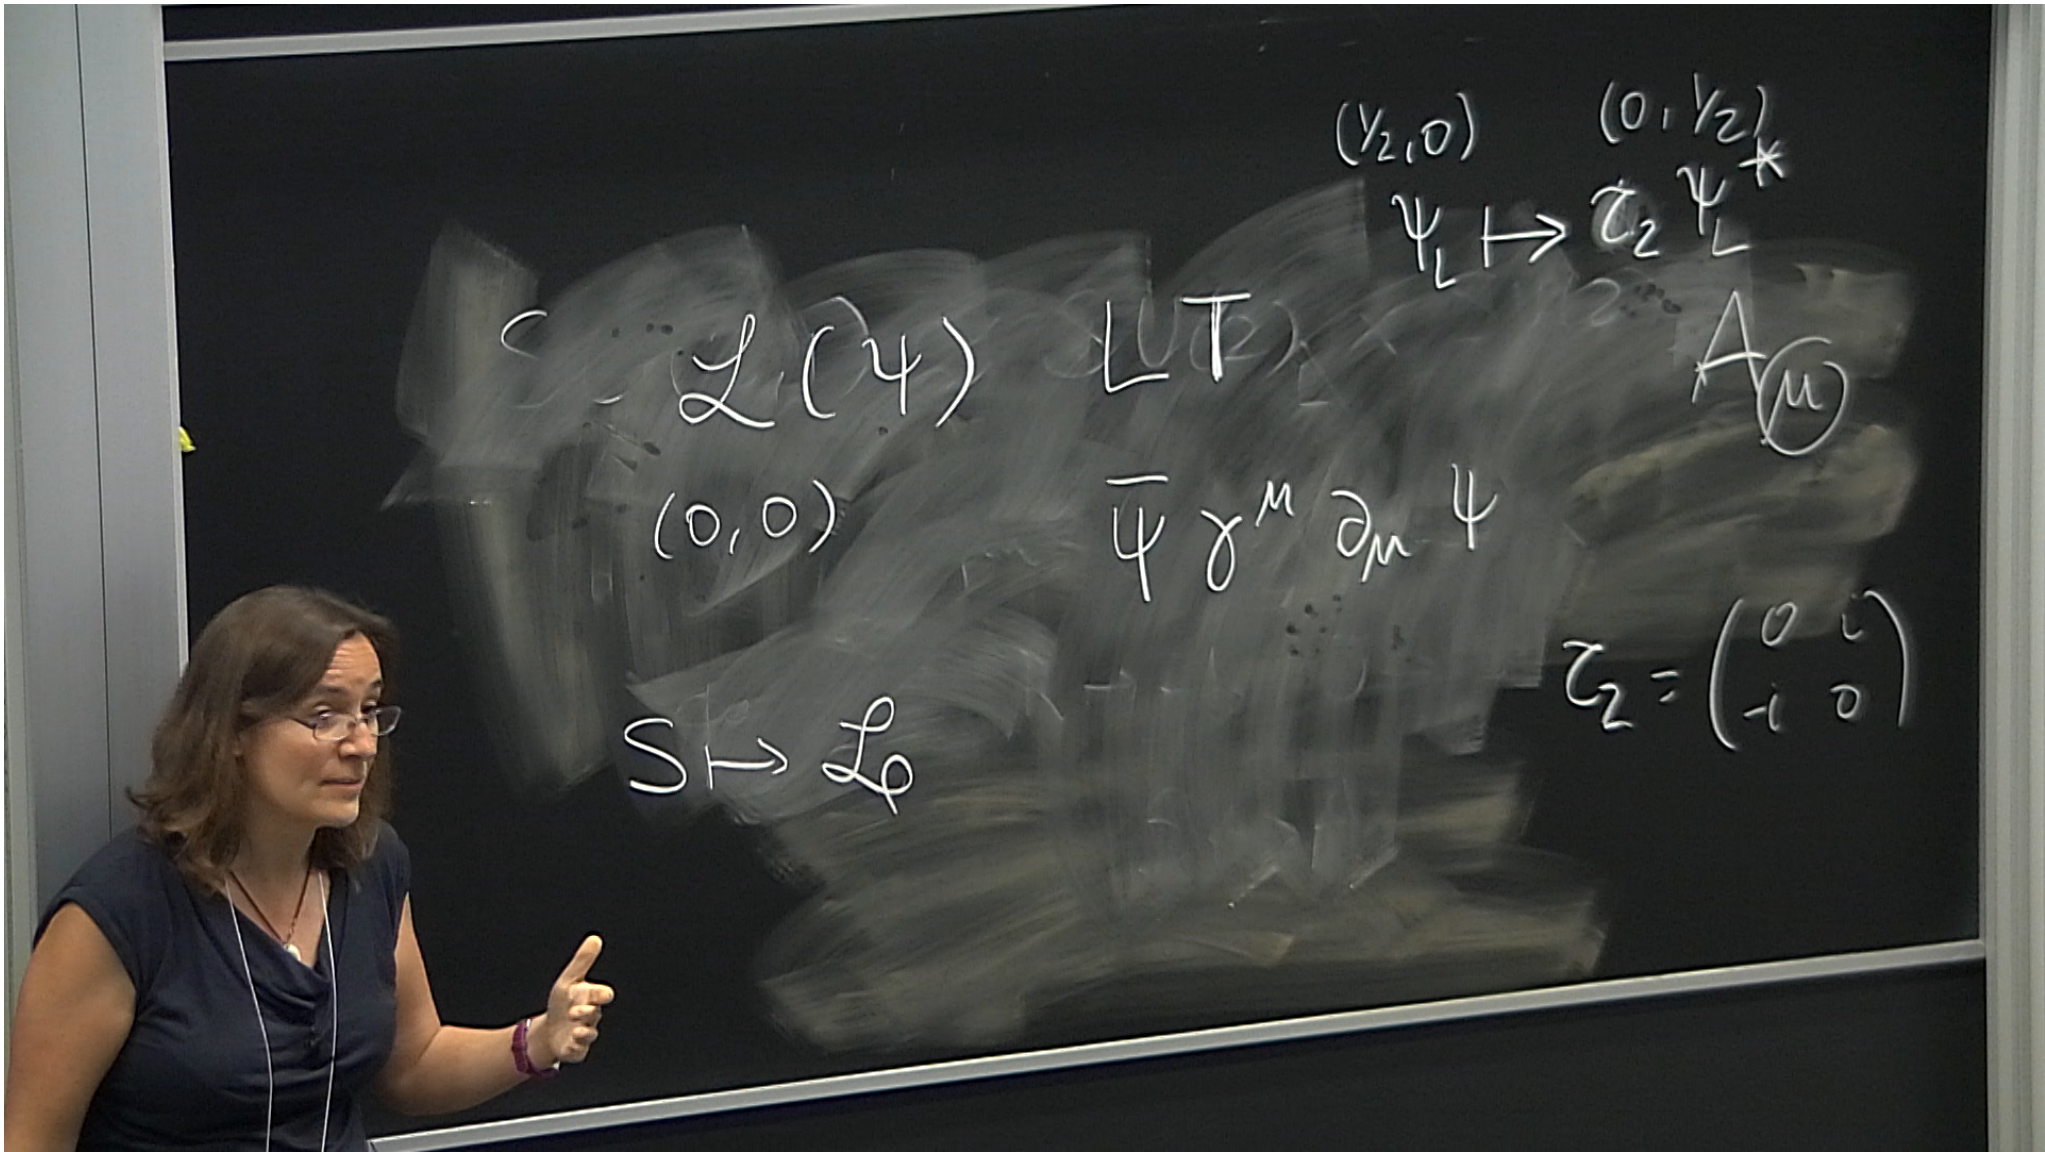 (1/2,0) (0,1/2)
ψ_L ↦ τ₂ ψ_L*
ℒ(ψ) LT A_μ
(0,0) ψ̄ γ^μ ∂_μ ψ
τ₂ = (0 i
-i 0)
S ↦ ℒφ